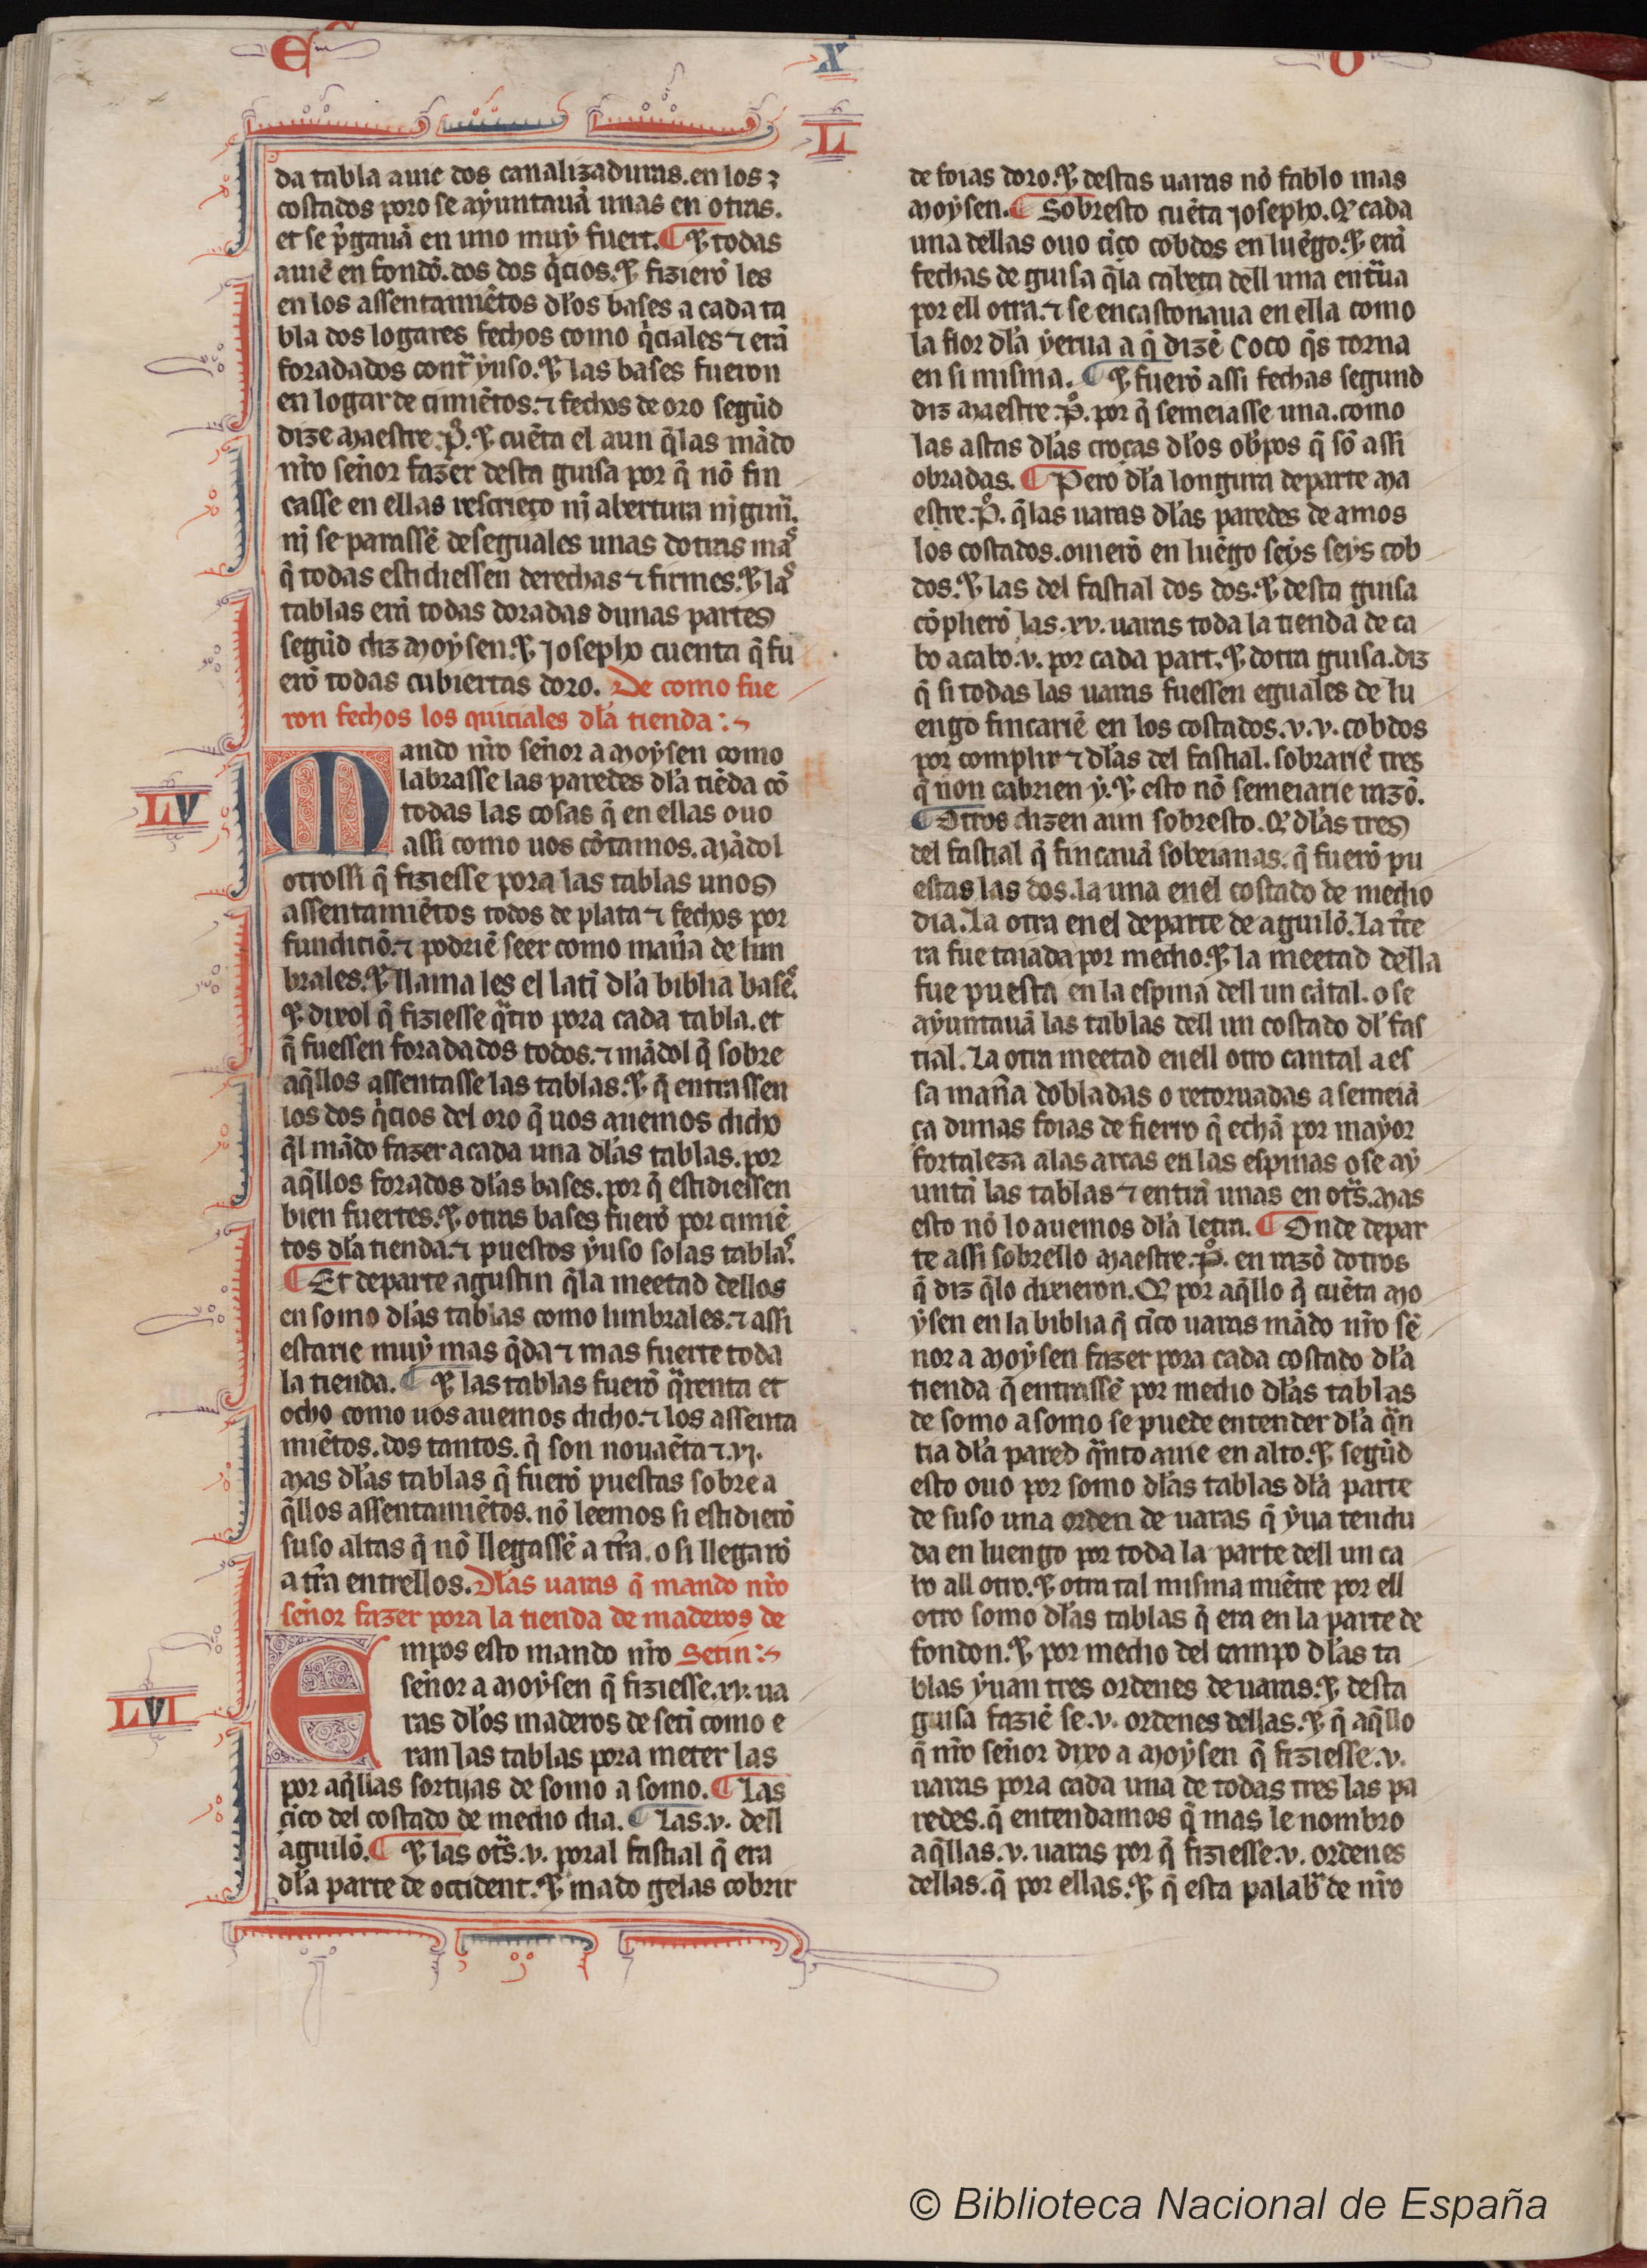 E X O
L
da tabla auie dos canalizaduras. en los
costados poro se ayuntauã unas en otras.
et se p̃gauã en uno muy fuert. ¶ Et todas
auiẽ en fondõ. dos dos q̃cios. Et fizierõ les
en los assentamiẽtos dl̃os bases a cada ta
bla dos logares fechos como q̃ciales ⁊ erã
foradados cont̃ yuso. Et las bases fueron
en logar de cimiẽtos. ⁊ fechos de oro segũd
dize maestre .P̊. Et cuẽta el aun q̃ las mãdo
nr̃o señor fazer desta guisa por q̃ nõ fin
casse en ellas resurieço nj abertura njguña.
nj se parassẽ deseguales unas dotras mas
q̃ todas estidiessen derechas ⁊ firmes. Et las
tablas erã todas doradas dunas partes
segũd diz moysen. Et josepho cuenta q̃ fu
erõ todas cubiertas doro. De como fue
ron fechos los quiciales dl̃a tienda:
LV
Mando nr̃o señor a moysen como
labrasse las paredes dl̃a tiẽda cõ
todas las cosas q̃ en ellas ouo
assi como uos cõtamos. mãdol
otrossi q̃ fiziesse pora las tablas unos
assentamiẽtos todos de plata ⁊ fechos por
fundiciõ. ⁊ podriẽ seer como mañã de lim
brales. Et llama les el latĩ dl̃a biblia bases.
Et dixol q̃ fiziesse q̃tro pora cada tabla. et
q̃ fuessen foradados todos. ⁊ mãdol q̃ sobre
aq̃llos assentasse las tablas. Et q̃ entrassen
los dos q̃cios del oro q̃ uos auemos dicho
q̃l mãdo fazer a cada una dl̃as tablas. por
aq̃llos forados dl̃as bases. por q̃ estidiessen
bien fuertes. Et otras bases fuerõ por cimiẽ
tos dl̃a tienda. ⁊ puestos yuso solas tablas.
¶ Et departe agustin q̃ la meetad dellos
en somo dl̃as tablas como limbrales. ⁊ assi
estarie muy mas q̃da ⁊ mas fuerte toda
la tienda. ¶ Et las tablas fuerõ q̃renta et
ocho como uos auemos dicho. ⁊ los assenta
miẽtos. dos tantos. q̃ son nouaẽta ⁊ .vj.
Mas dl̃as tablas q̃ fuerõ puestas sobre a
q̃llos assentamiẽtos. nõ leemos si estidierõ
suso altas q̃ nõ llegassẽ a tr̃a. o si llegarõ
a tr̃a entrellos. Dl̃as uaras q̃ mando nr̃o
señor fazer pora la tienda de maderos de
LVI
Empos esto mando nr̃o Setin:
señor a moysen q̃ fiziesse .xv. ua
ras dl̃os maderos de setĩ como e
ran las tablas pora meter las
por aq̃llas sortijas de somo a somo. ¶ Las
cĩco del costado de medio dia. ¶ Las .v. dell
aguilõ. ¶ Et las ot̃s .v. poral fastial q̃ era
dl̃a parte de occident. Et mãdo gelas cobrir
de foias doro. Et destas uaras nõ fablo mas
moysen. ¶ Sobresto cuẽta josepho. Q̃ cada
una dellas ouo cĩco cobdos en luẽgo. Et erã
fechas de guisa q̃ la cabeça dell una ent̃ua
por ell otra. ⁊ se encastonaua en ella como
la flor dl̃a yerua a q̃ dizẽ Coco q̃s torna
en si misma. ¶ Et fuerõ assi fechas segund
diz maestre .P̊. por q̃ semeiasse una. como
las astas dl̃as croças dl̃os ob̃pos q̃ sõ assi
obradas. ¶ Pero dl̃a longura departe ma
estre .P̊. q̃ las uaras dl̃as paredes de amos
los costados. ouierõ en luẽgo seys seys cob
dos. Et las del fastial dos dos. Et desta guisa
cõplierõ las .xv. uaras toda la tienda de ca
bo a cabo .v. por cada part. Et dotra guisa. diz
q̃ si todas las uaras fuessen eguales de lu
engo fincariẽ en los costados .v. v. cobdos
por complir ⁊ dl̃as del fastial. sobrariẽ tres
q̃ non cabrien y. Et esto nõ semeiarie razõ.
¶ Otros dizen aun sobresto. Q̃ dl̃as tres
del fastial q̃ fincauã sobeianas. q̃ fuerõ pu
estas las dos. la una en el costado de medio
dia. La otra en el departe de aguilõ. La t̃ce
ra fue taiada por medio. Et la meetad della
fue puesta en la espina dell un cãtal. o se
ayuntauã las tablas dell un costado dl̃ fas
tial. La otra meetad en ell otro cantal a es
sa mañã dobladas o retornadas a semeiã
ça dunas foias de fierro q̃ echã por mayor
fortaleza a las arcas en las espinas o se ay
untã las tablas ⁊ entrã unas en ot̃s. Mas
esto nõ lo auemos dl̃a letra. ¶ Onde depar
te assi sobrello maestre .P̊. en razõ dotros
q̃ diz q̃ lo dixieron. Q̃ por aq̃llo q̃ cuẽta mo
ysen en la biblia q̃ cĩco uaras mãdo nr̃o se
ñor a moysen fazer pora cada costado dl̃a
tienda q̃ entrassẽ por medio dl̃as tablas
de somo a somo se puede entender dl̃a q̃n
tia dl̃a pared q̃nto auie en alto. Et segũd
esto ouo por somo dl̃as tablas dl̃a parte
de suso una orden de uaras q̃ yua tendu
da en luengo por toda la parte dell un ca
bo all otro. Et otra tal misma miẽtre por ell
otro somo dl̃as tablas q̃ era en la parte de
fondon. Et por medio del campo dl̃as ta
blas yuan tres ordenes de uaras. Et desta
guisa faziẽ se .v. ordenes dellas. Et q̃ aq̃llo
q̃ nr̃o señor dixo a moysen q̃ fiziesse .v.
uaras pora cada una de todas tres las pa
redes. q̃ entendamos q̃ mas le nombro
aq̃llas .v. uaras por q̃ fiziesse .v. ordenes
dellas. q̃ por ellas. Et q̃ esta palab̃ de nr̃o
© Biblioteca Nacional de España